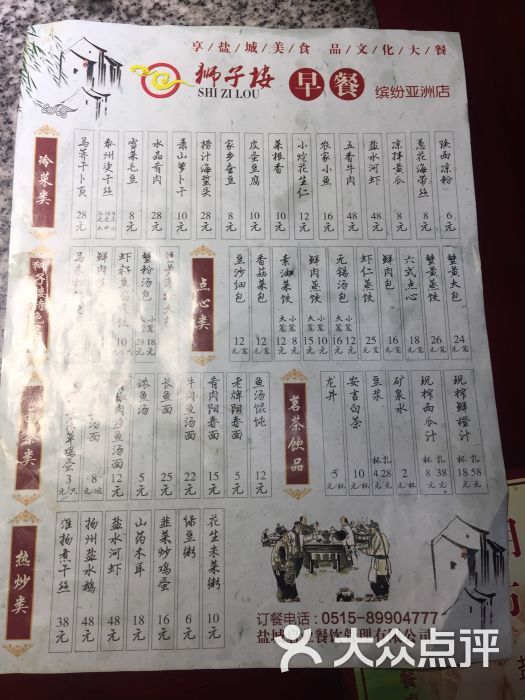 享/盐/城/美/食 品/文/化/大/餐
狮子楼
SHI ZI LOU
早餐
缤纷亚洲店
冷菜类
马荠干卜页 28元
泰州烫干丝
雪菜毛豆 8元
水晶肴肉 28元
萧山萝卜干 10元
捞汁海蜇头 28元
家乡蚕豆 8元
皮蛋豆腐 10元
菜根香 10元
小烩花生仁 12元
农家小鱼 16元
五香牛肉 48元
盐水河虾 48元
凉拌黄瓜 8元
葱花海带丝 8元
陕西凉粉 6元
点心类
豆沙细包 12元/笼
香菇菜包 12元/笼
素油菜饺 大笼12元 小笼8元
鲜肉蒸饺 大笼15元 小笼10元
无锡汤包 大笼16元 小笼12元
虾仁蒸饺 25元/笼
鲜肉包 16元/笼
六式点心 18元/笼
蟹黄蒸饺 26元/笼
蟹黄大包 24元/笼
浓鱼汤 5元
长鱼面 25元
牛肉鱼汤面 22元
肴肉阳春面 15元
老牌阳春面 5元
鱼汤馄饨 12元
茗茶饮品
龙井 5元/杯
安吉白茶 10元/杯
豆浆 杯4元 扎28元
矿泉水 2元/杯
现榨西瓜汁 杯8元 扎38元
现榨鲜橙汁 杯18元 扎58元
热炒类
淮扬煮干丝 38元
扬州盐水鹅 48元
盐水河虾 48元
山药木耳 18元
韭菜炒鸡蛋 16元
绿豆粥 6元
花生米菜粥 10元
订餐电话：0515-89904777
大众点评